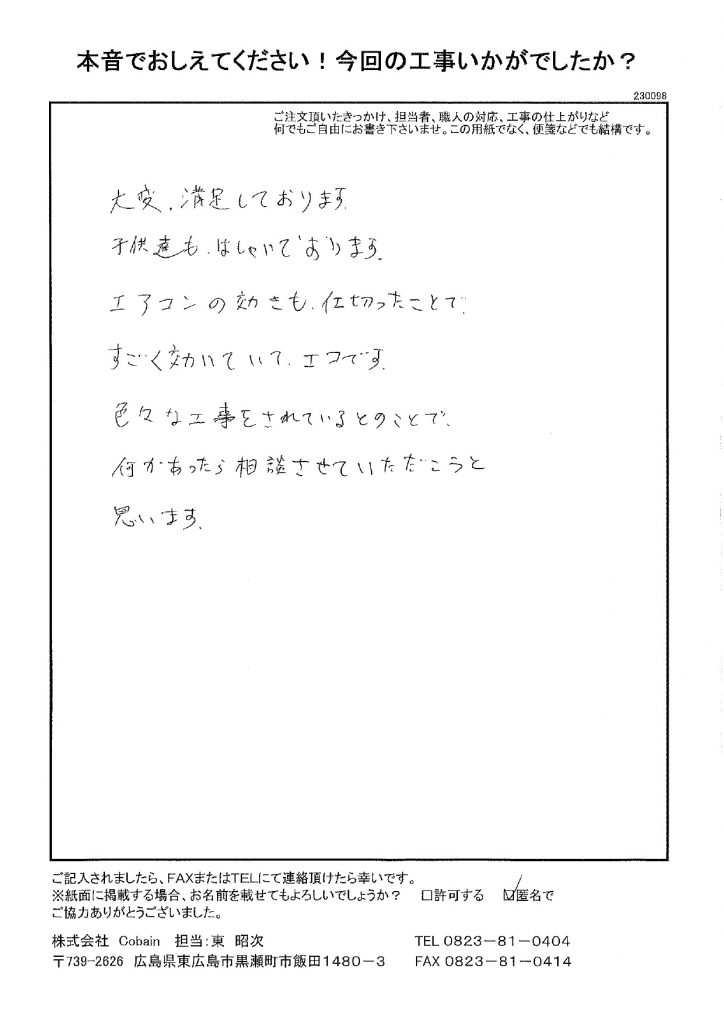 本音でおしえてください！今回の工事いかがでしたか？
230098
ご注文頂いたきっかけ、担当者、職人の対応、工事の仕上がりなど
何でもご自由にお書き下さいませ。この用紙でなく、便箋などでも結構です。
大変、満足しております。
子供達も、はしゃいでおります。
エアコンの効きも、仕切ったことで、
すごく効いていて、エコです。
色々な工事をされているとのことで、
何かあったら相談させていただこうと
思います。
ご記入されましたら、FAXまたはTELにて連絡頂けたら幸いです。
※紙面に掲載する場合、お名前を載せてもよろしいでしょうか？　□許可する　☑匿名で
ご協力ありがとうございました。
株式会社 Cobain　担当：東 昭次　TEL 0823－81－0404
〒739-2626 広島県東広島市黒瀬町市飯田1480－3　FAX 0823－81－0414